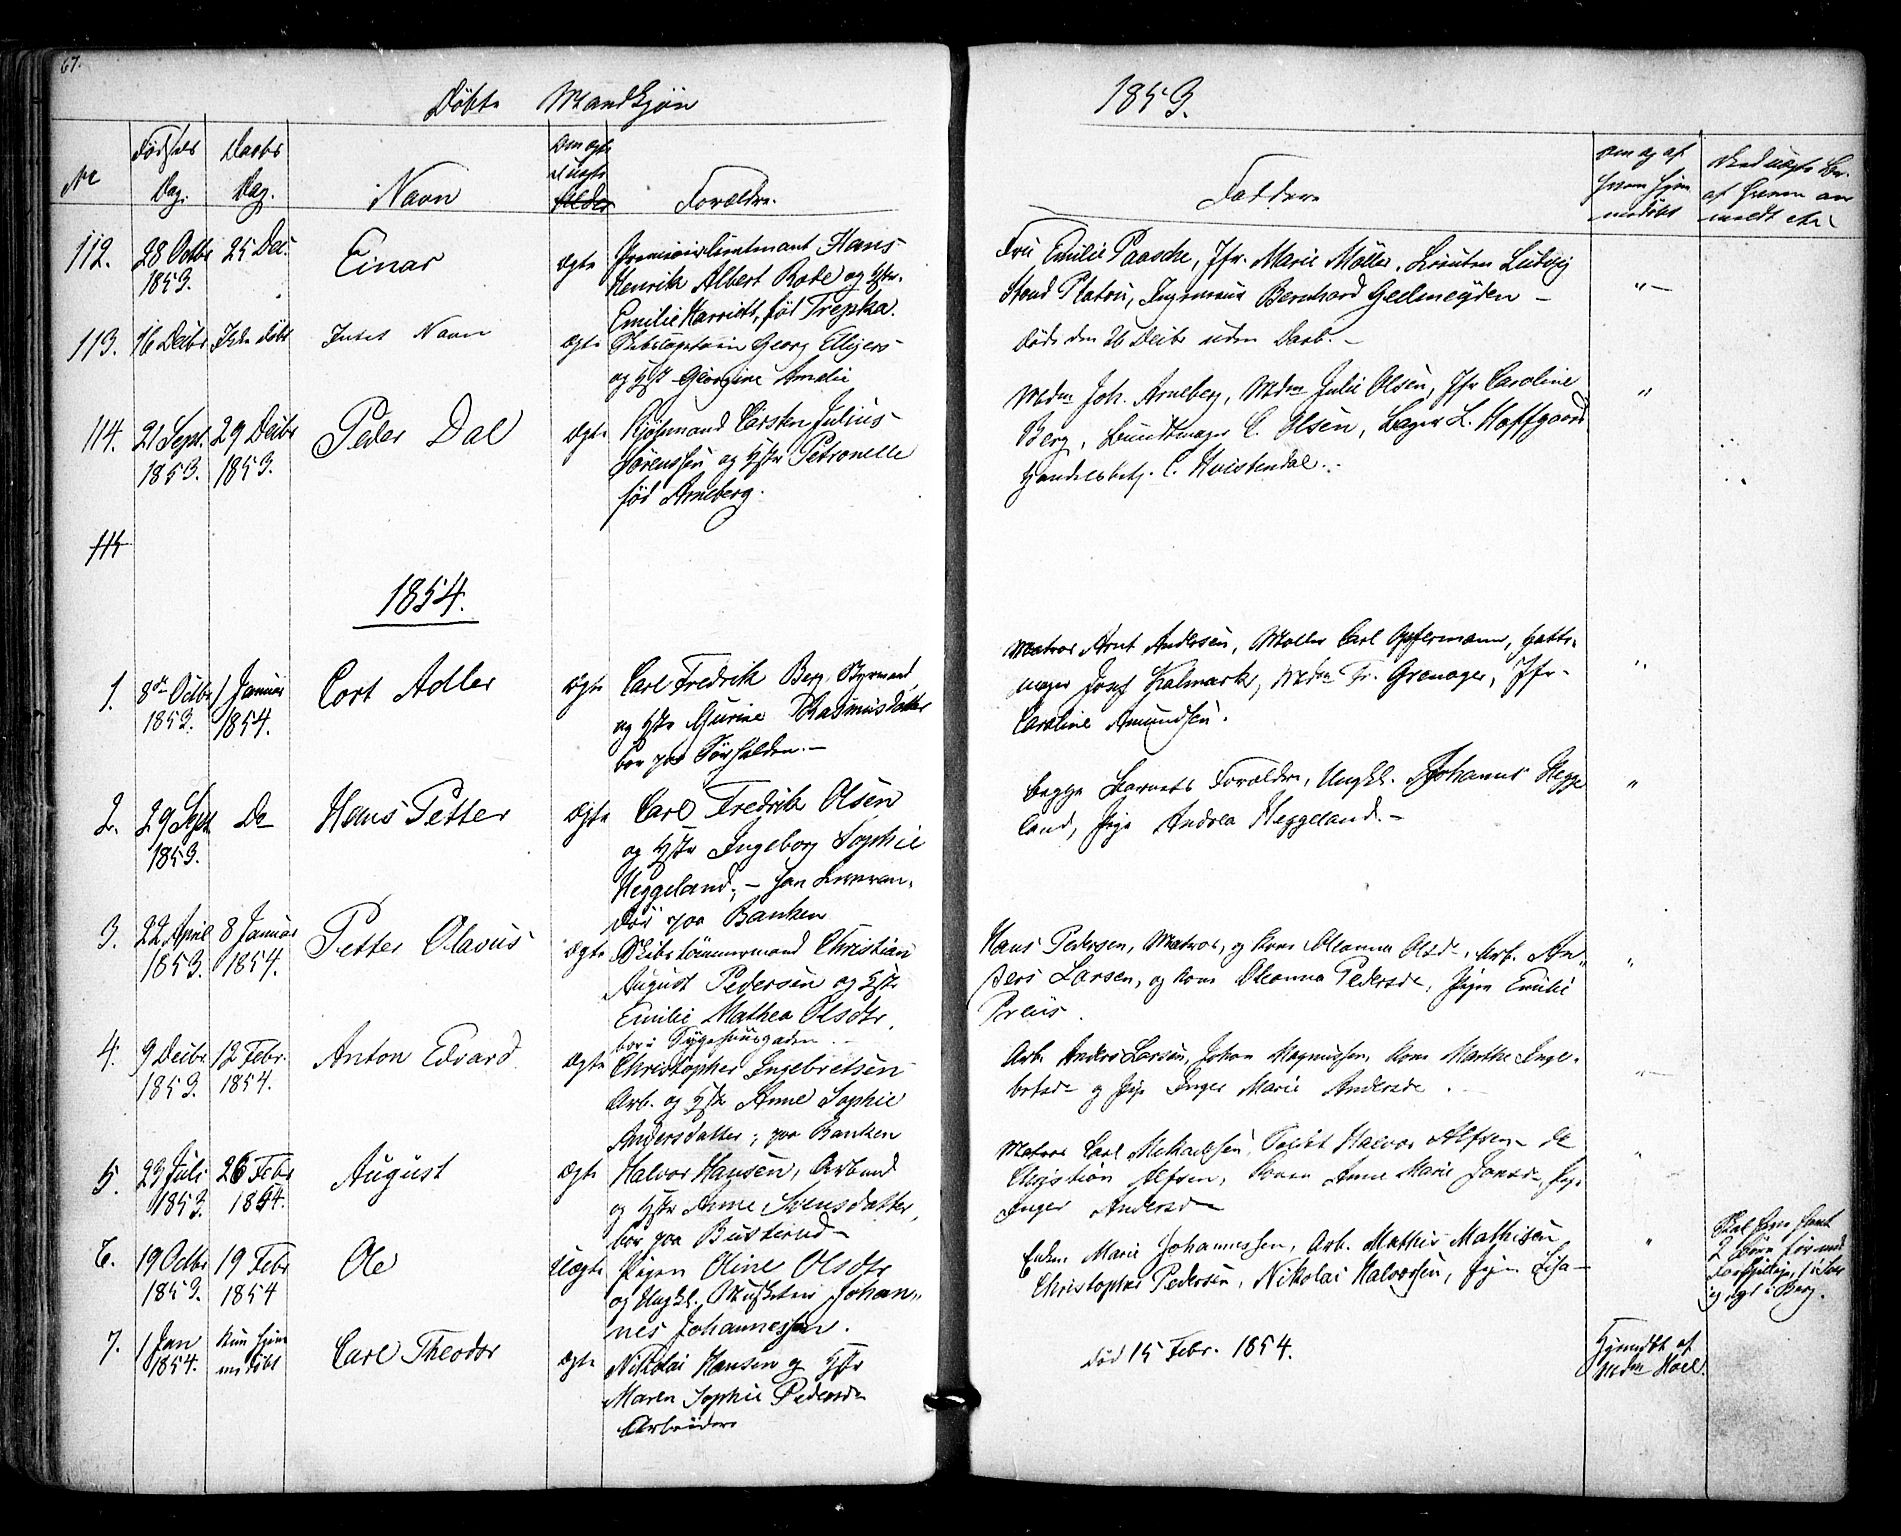 67.
Døbte Mandkjøn
1853.
No
Fødsels Dag.
Daabs Dag.
Navn
Om ægte el uægte
Forældre.
Faddere
Om og af hvem hjemmedøbt
112. 28 Octbr 1853. 25 Dec. Einar ægte Premierlieutenant Hans
Henrik Albert Bode og Hstr.
Emilie Harriett, fød Trepka.
Fru Emilie Paasche, Jfr. Marie Møller, Ludvig
Bernhard Geelmeyden –
113. 16 Decbr Ikke døbt Intet Navn ægte Georg Elligers
og Hstr Georgine Amalie
Døde den 26 Decbr uden Daab. –
114. 21 Sept. 1853. 29 Decbr 1853. Peder Dal ægte Kjøbmand Carsten Julius
Sørenssen og Hstr Petronelle
fød Arneberg.
Mdm Joh. Arneberg, Mdm Julie Olsen, Jfr Caroline
Berg, Bundtmager C. Olsen, Bager L. Hoffgaard
Handelsbetj. C. Hvistendal. –
115
1854.
1. 8de Octbr 1853. 1 Januar 1854. Cort Adler ægte Carl Fredrik Berg, Styrmand
og Hstr Gurine Rasmusdatter
boe paa Sørhalden. –
Matros Arnt Andersen, Møller Carl Opfermann, Hatte-
mager Josef Kalmark, Mdm Fr. Grønager, Jfr
Caroline Amundsen.
2. 29 Sept 1853. Do Hans Petter ægte Carl Fredrik Olsen
og Hstr Ingeborg Sophie
Heggeland; –
paa Banken
begge Barnets Forældre, Ungkl. Johannes Hegge
land, Pige Andrea Heggeland. –
3. 22 April 1853. 8 Januar 1854. Petter Olavus ægte Skibstømmermand Christian
August Pedersen og Hstr
Emilie Mathea Olsdtr,
boe i Sygehuusgaden. –
Hans Pedersen, Matros, og Kone Oleanna Olsd., Arb. An-
ders Larsen, og Kone Oleanna Pedersd., Pigen Emilie
Preus.
4. 9 Decbr 1853. 12 Febr. 1854. Anton Edvard ægte Christopher Ingebretsen
Arb. og Hstr Anne Sophie
Andersdatter; paa Banken
Arb. Anders Larsen, Johan Magnussen, Kone Marthe Inge-
bretsd. og Pige Inger Marie Andersd.
5. 23 Juli 1853. 26 Febr 1854. August ægte Halvor Hansen, Arbmd
og Hstr Anne Svensdatter,
boe paa Busterud –
Matros Carl Mikaelsen, Halvor Alfsen
Christian Alfsen, Konen Anne Marie Jonsd., Pige
Inger Andersd.
6. 19 Octbr 1853. 19 Febr 1854 Ole Uægte Pigen Oline Olsdtr
og Ungkl. Musketeer Johan-
nes Johannessen.
Enken Marie Johannessen, Arb. Mathis Mathisen
Christopher Pedersen, Nikolai Halvorsen, Pigen Lisa –
7. 1 Jan 1854. Kun hjem medøbt Carl Theodor ægte Nikolai Hansen og Hstr
Maren Sophie Pedersd.
Arbeider
Død 15 Febr. 1854.
Hjemdbt af Mdm Hoel.